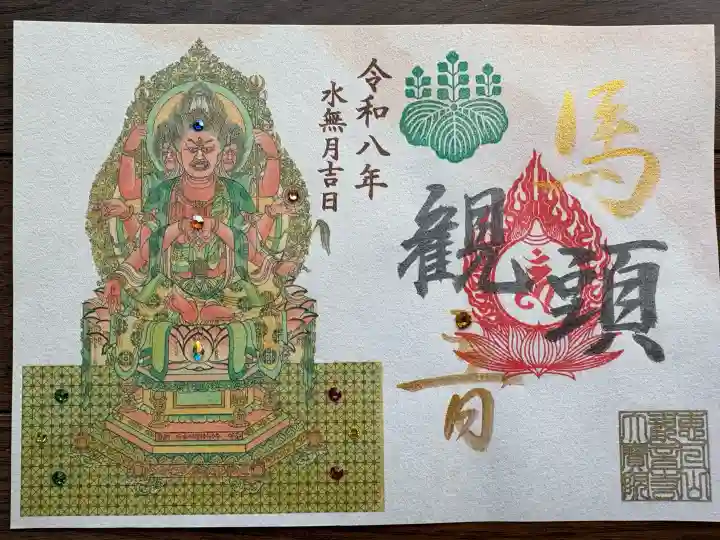 馬頭
観音
令和八年
水無月吉日